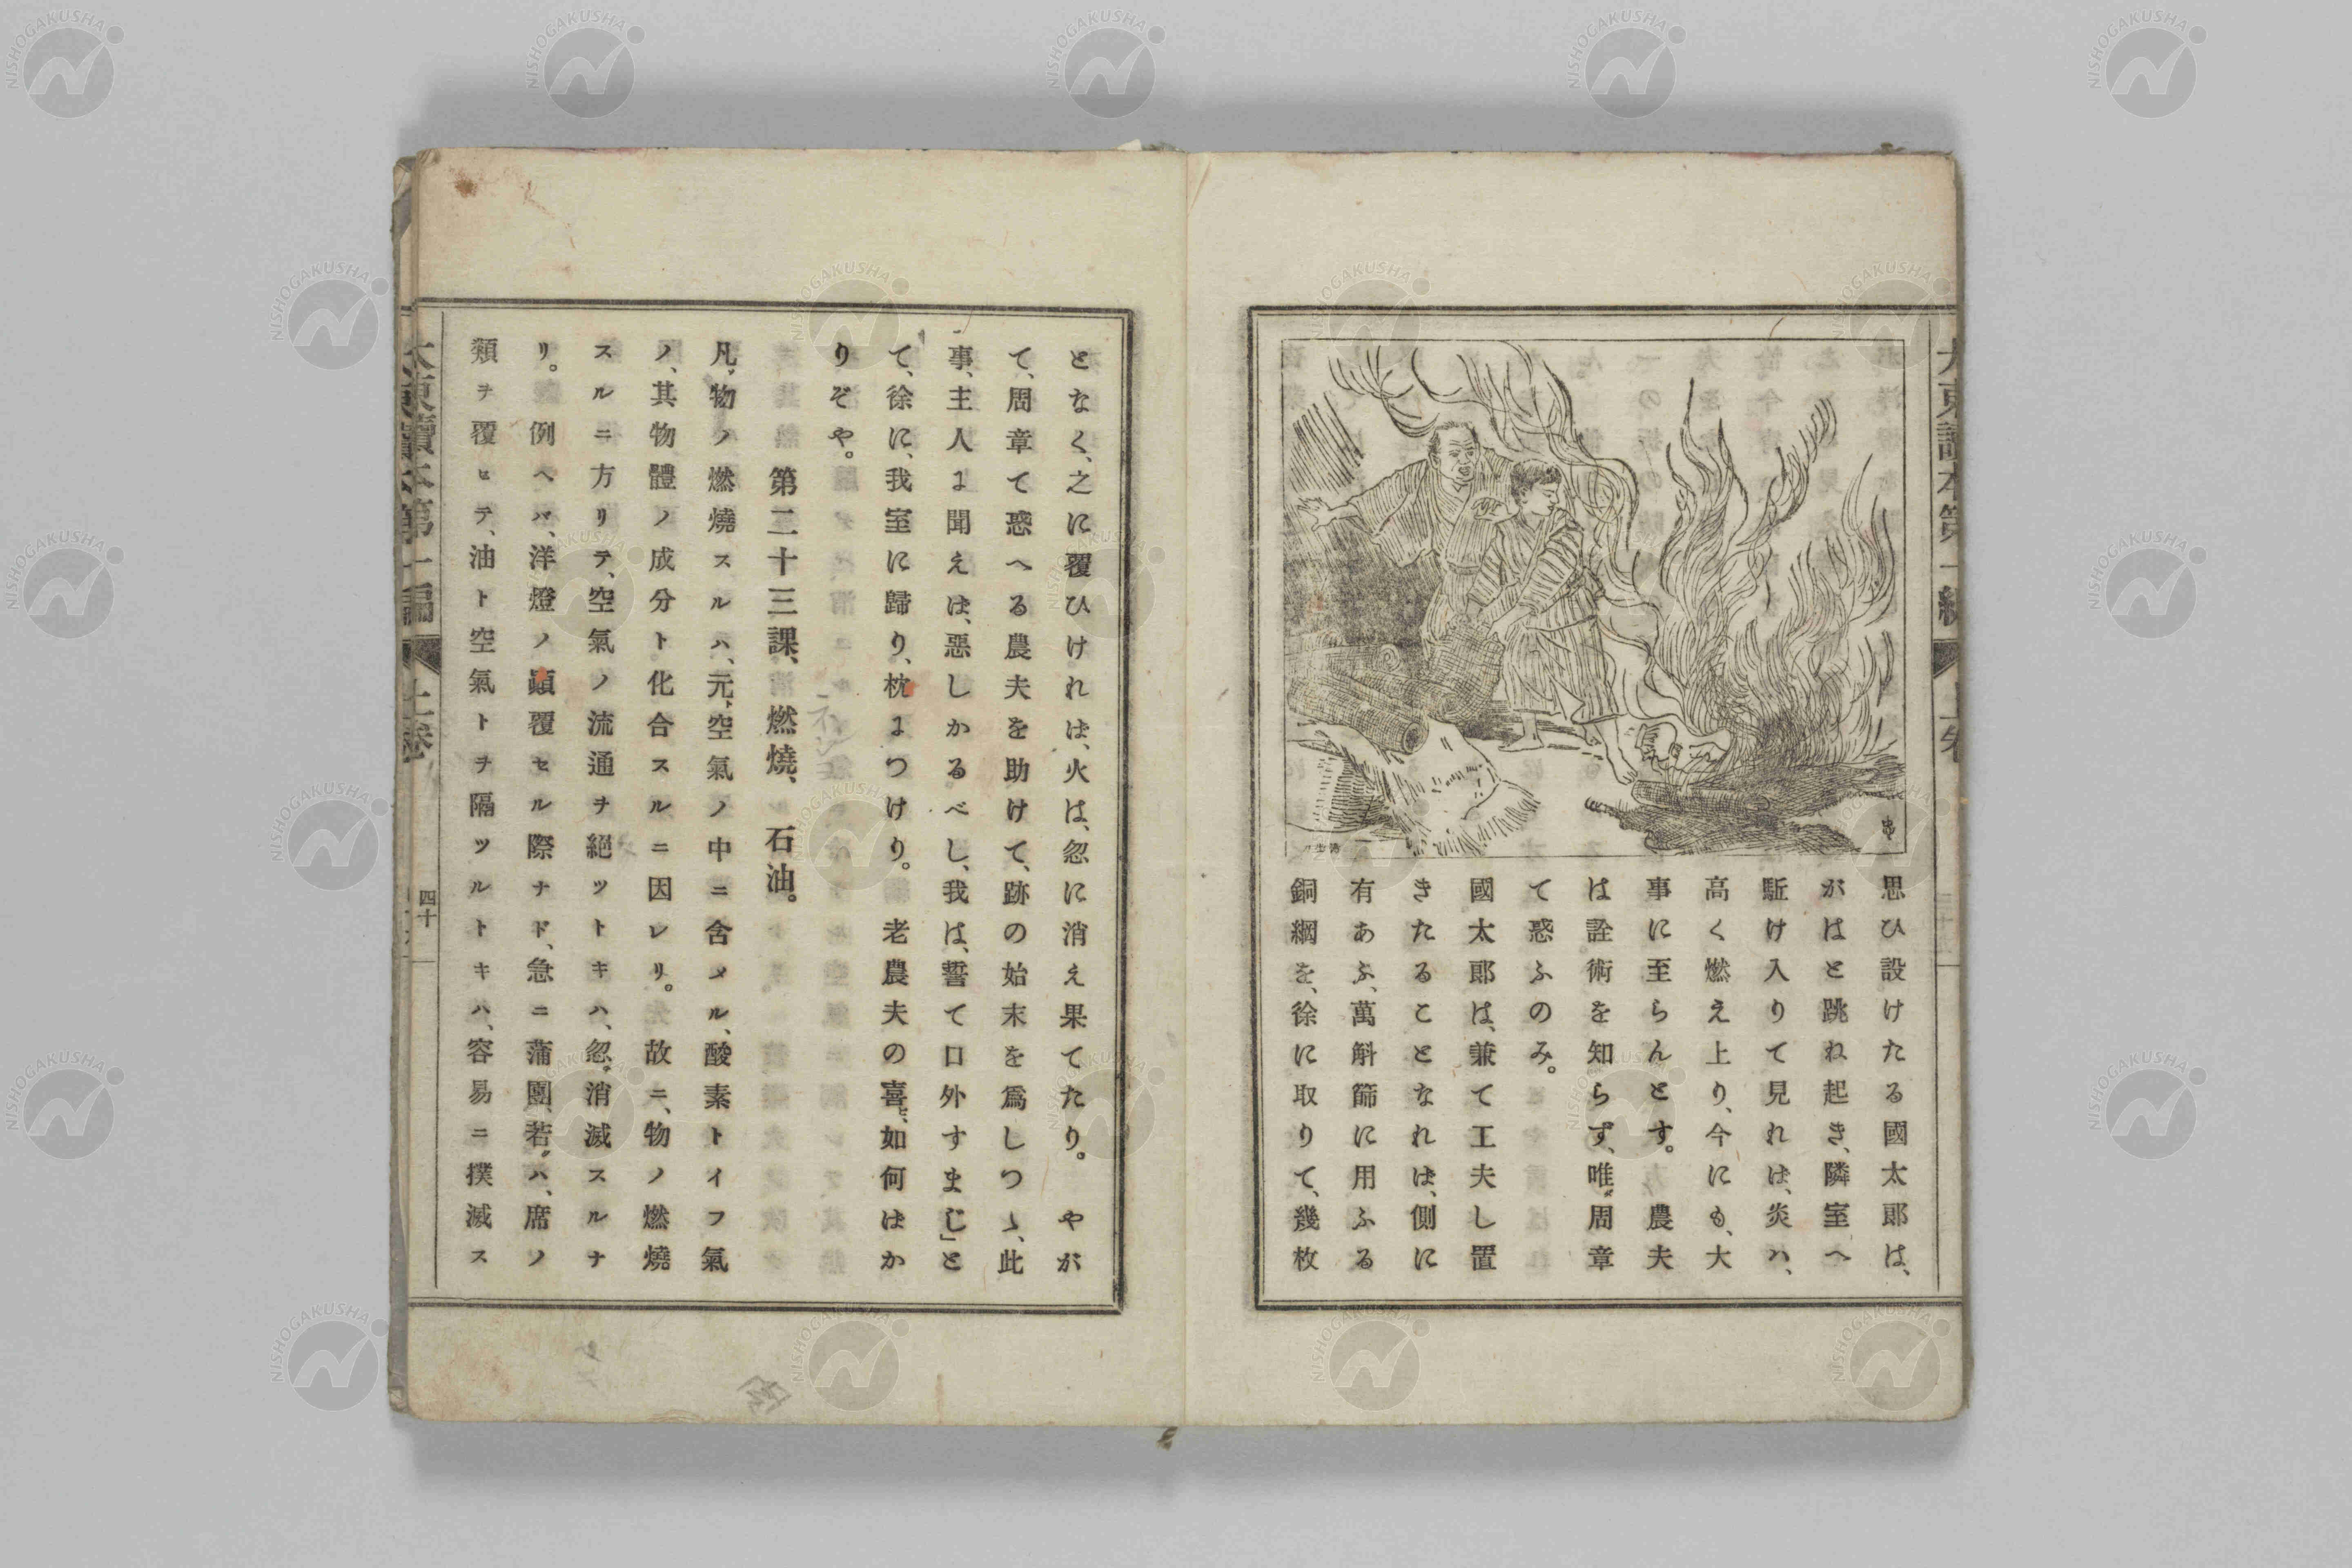 思ひ設けたる國太郞は、
がばと跳ね起き、隣室へ
駈け入りて見れは、炎ハ、
高く燃え上り、今にも、大
事に至らんとす。農夫
は詮術を知らず、唯〻周章
て惑ふのみ。
國太郞は、兼て工夫し置
きたることなれは、側に
有あふ、萬斛篩に用ふる
銅網を、徐に取りて、幾枚
となく、之に覆ひけれは、火は、忽に消え果てたり。やが
て、周章て惑へる農夫を助けて、跡の始末を爲しつゝ、此
事、主人よ聞えは、惡しかるべし、我は、誓て口外すまじ」と
て、徐に、我室に歸り、枕よつけり。老農夫の喜ヒ、如何はか
りぞや。
第二十三課、燃燒、石油。
凡〻物ノ燃燒スルハ、元〻空氣ノ中ニ含メル、酸素トイフ氣
ノ、其物體ノ成分ト化合スルニ因レリ。故ニ、物ノ燃燒
スルニ方リテ、空氣ノ流通ヲ絕ツトキハ、忽〻消滅スルナ
リ。例ヘハ、洋燈ノ顚覆セル際ナド、急ニ蒲團、若〻ハ、席ノ
類ヲ覆ヒテ、油ト空氣トヲ隔ツルトキハ、容易ニ撲滅ス
大東讀本第一編 上卷
四十
NISHOGAKUSHA